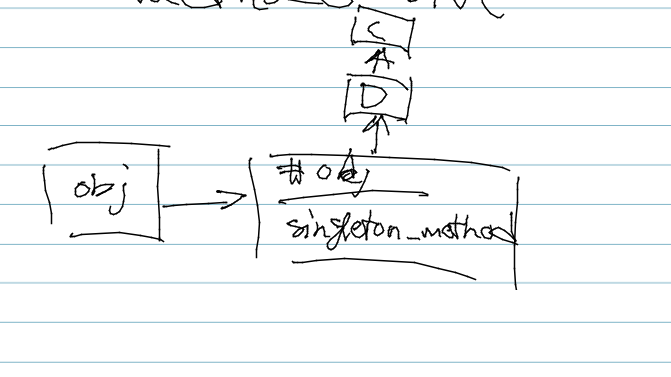 C
D
obj
#obj
singleton_method